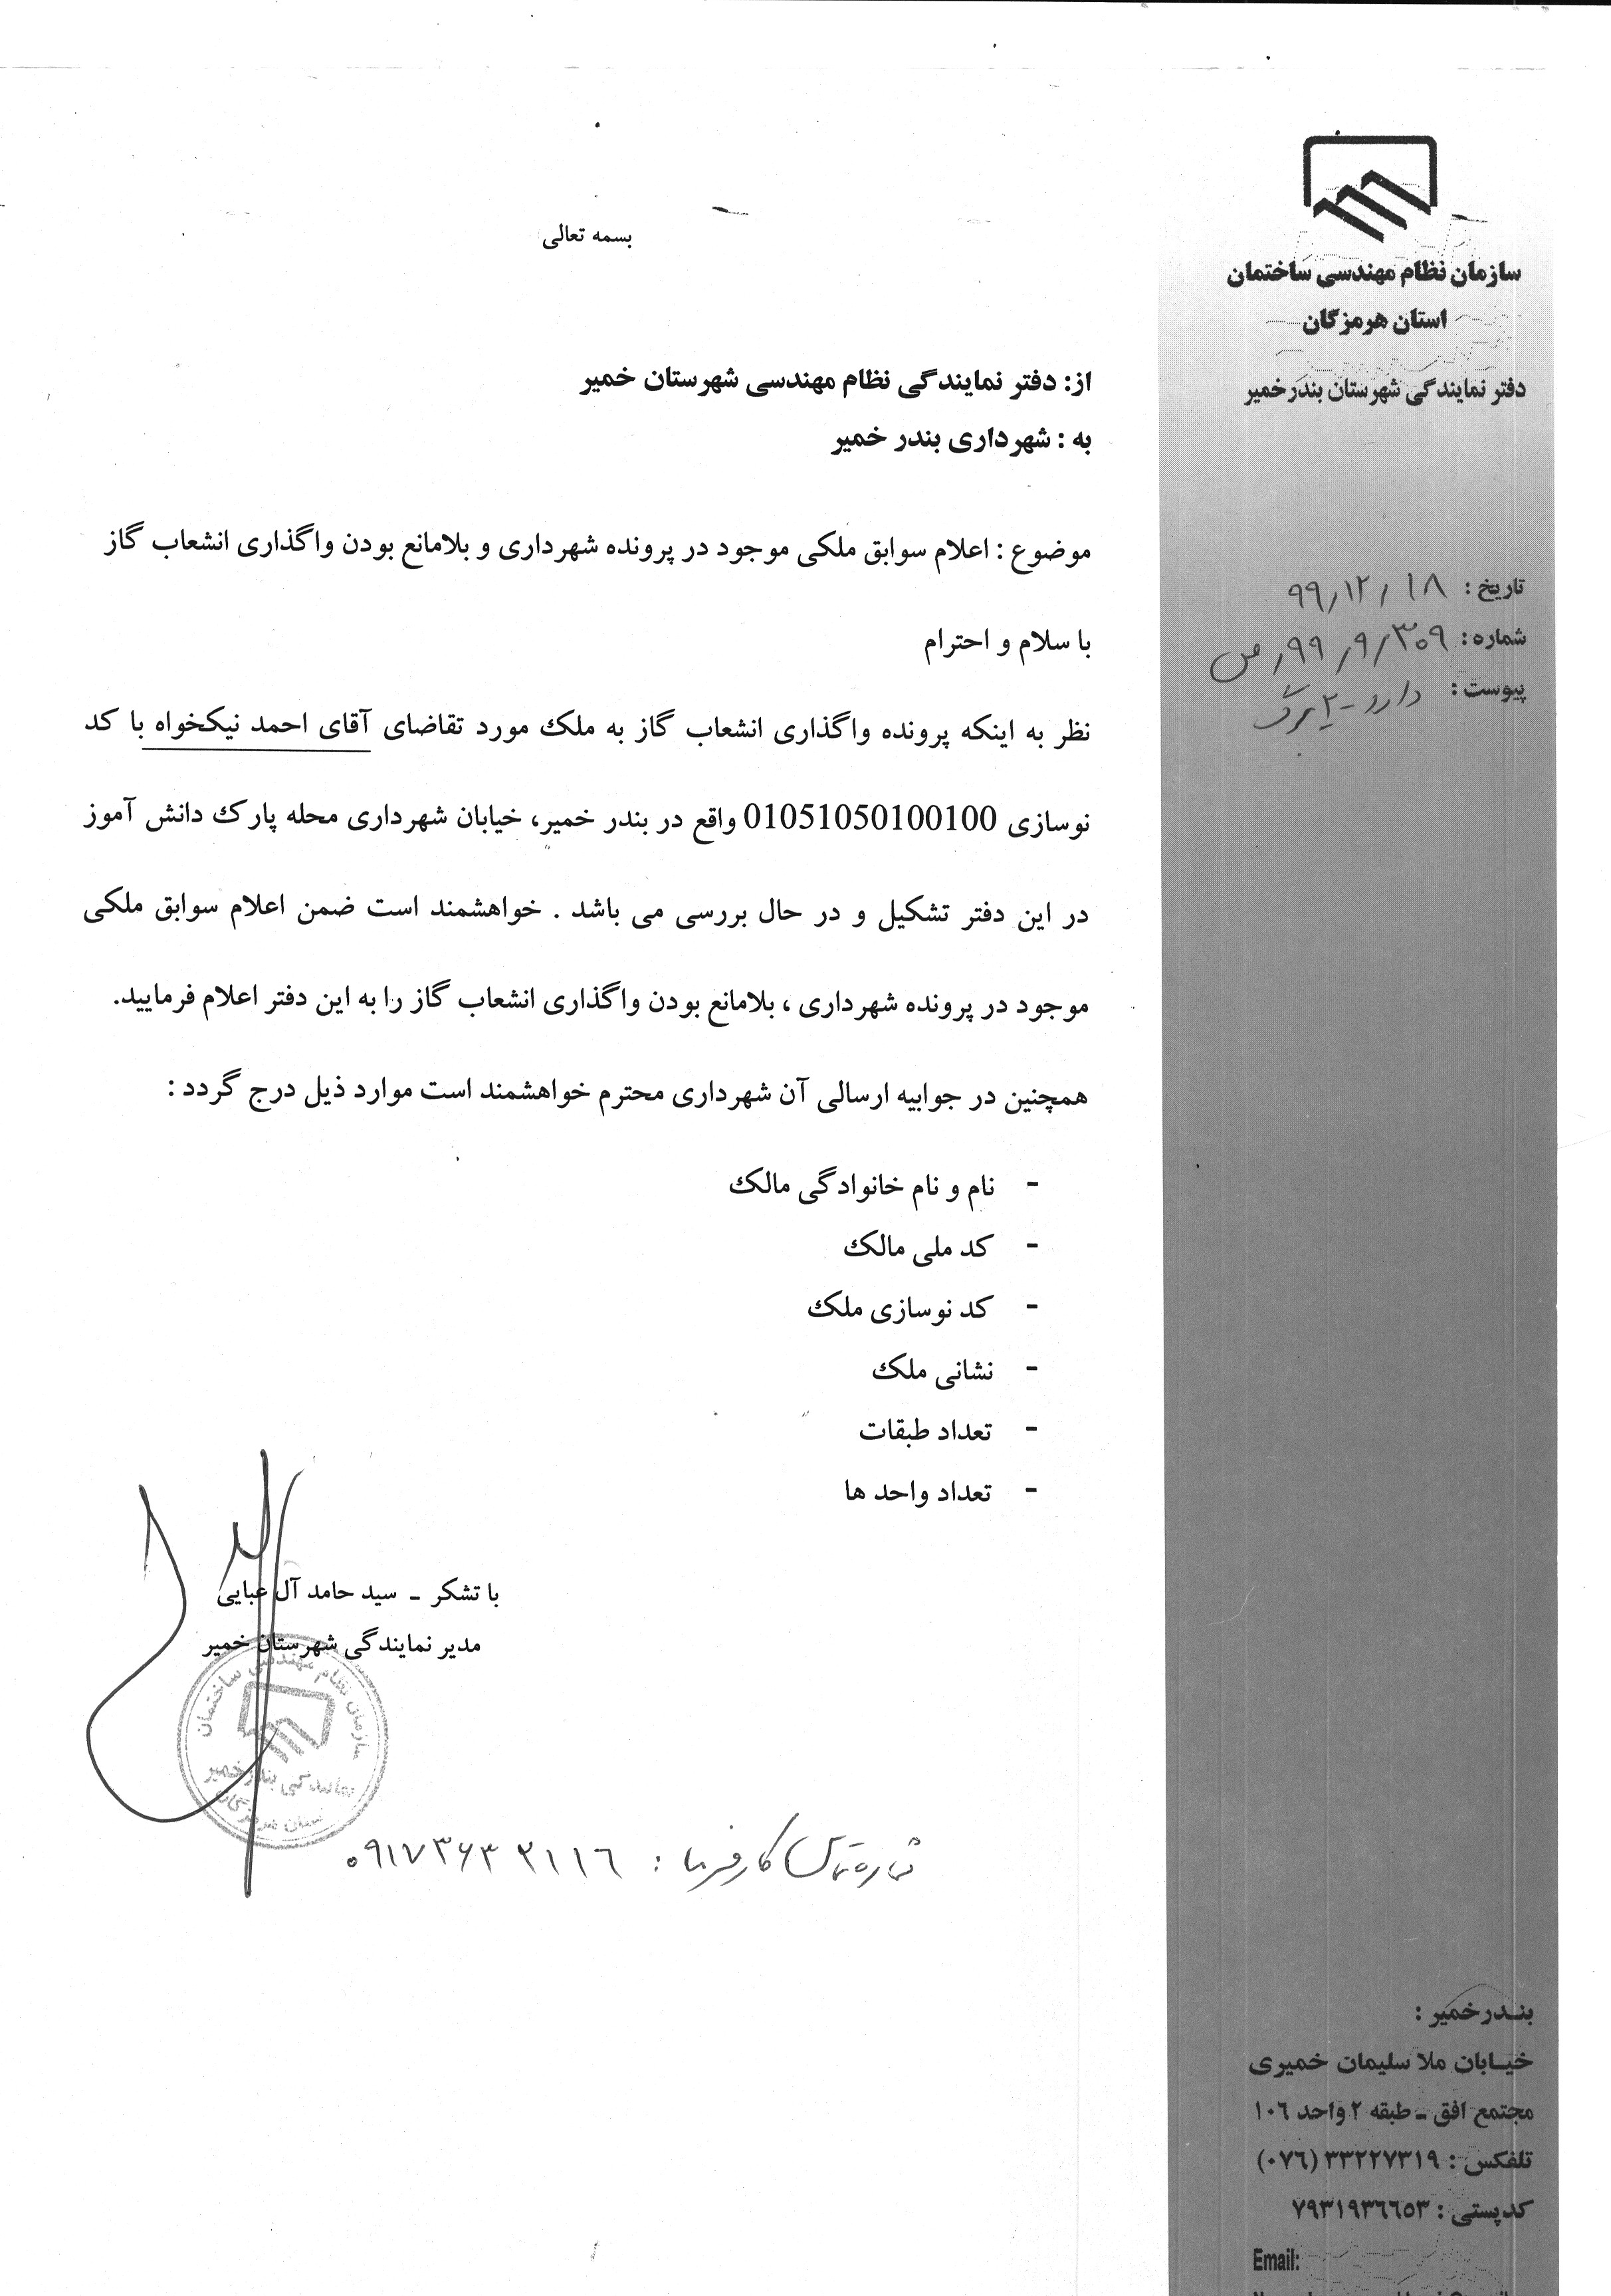 سازمان نظام مهندسی ساختمان
استان هرمزگان
دفتر نمایندگی شهرستان بندرخمیر
تاریخ : ۹۹/۱۲/۱۸
شماره : ۳۰۹/۹/۹۹/ص
پیوست : دارد - ۲ برگ
بسمه تعالی
از: دفتر نمایندگی نظام مهندسی شهرستان خمیر
به : شهرداری بندر خمیر
موضوع : اعلام سوابق ملکی موجود در پرونده شهرداری و بلامانع بودن واگذاری انشعاب گاز
با سلام و احترام
نظر به اینکه پرونده واگذاری انشعاب گاز به ملک مورد تقاضای آقای احمد نیکخواه با کد
نوسازی 01051050100100 واقع در بندر خمیر، خیابان شهرداری محله پارک دانش آموز
در این دفتر تشکیل و در حال بررسی می باشد . خواهشمند است ضمن اعلام سوابق ملکی
موجود در پرونده شهرداری ، بلامانع بودن واگذاری انشعاب گاز را به این دفتر اعلام فرمایید.
همچنین در جوابیه ارسالی آن شهرداری محترم خواهشمند است موارد ذیل درج گردد :
- نام و نام خانوادگی مالک
- کد ملی مالک
- کد نوسازی ملک
- نشانی ملک
- تعداد طبقات
- تعداد واحد ها
با تشکر ـ سید حامد آل عبایی
مدیر نمایندگی شهرستان خمیر
سازمان نظام مهندسی ساختمان
نمایندگی بندرخمیر
استان هرمزگان
شماره تماس کارفرما : ۰۹۱۷۳۶۳۲۱۱۶
بندرخمیر :
خیابان ملا سلیمان خمیری
مجتمع افق ـ طبقه ۲ واحد ۱۰۶
تلفکس : ۳۳۲۲۷۳۱۹ (۰۷۶)
کدپستی : ۷۹۳۱۹۳۶۶۵۳
Email: